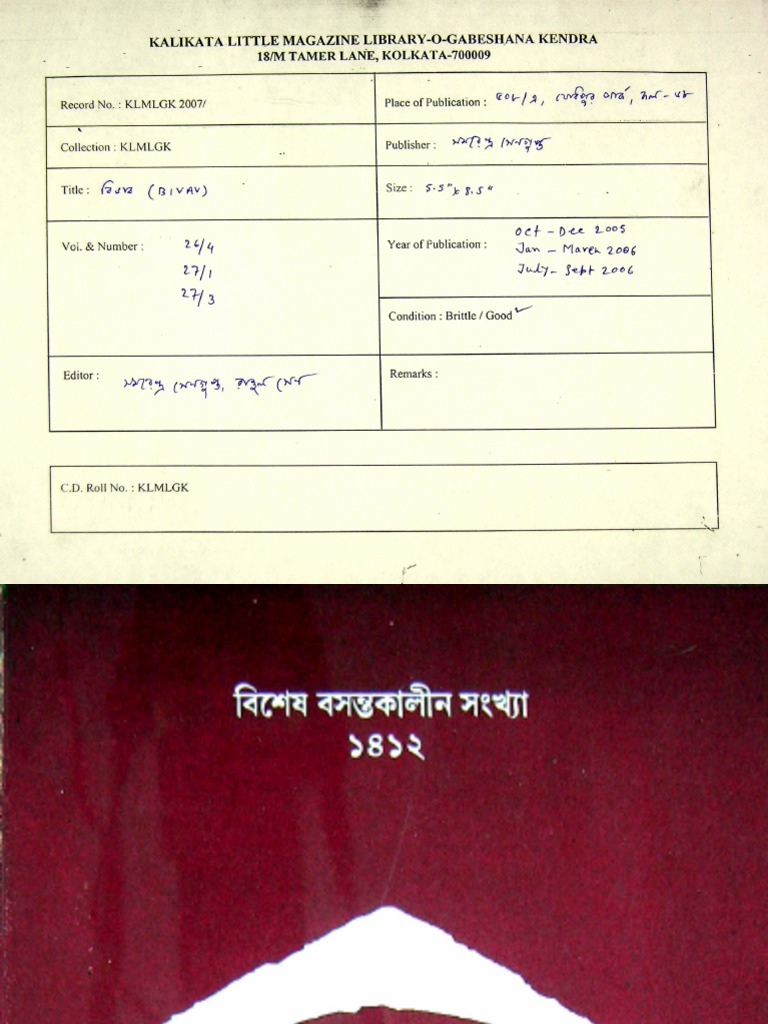 KALIKATA LITTLE MAGAZINE LIBRARY-O-GABESHANA KENDRA
18/M TAMER LANE, KOLKATA-700009
Record No. : KLMLGK 2007/
Place of Publication :
Collection : KLMLGK
Publisher : সমরেন্দ্র সেনগুপ্ত
Title : বিভাব (BIVAV)
Size : 5.5" x 8.5"
Vol. & Number : 26/4
27/1
27/3
Year of Publication : Oct - Dec 2005
Jan - March 2006
July - Sept 2006
Condition : Brittle / Good ✓
Editor : সমরেন্দ্র সেনগুপ্ত, রাহুল সেন
Remarks :
C.D. Roll No. : KLMLGK
বিশেষ বসন্তকালীন সংখ্যা
১৪১২